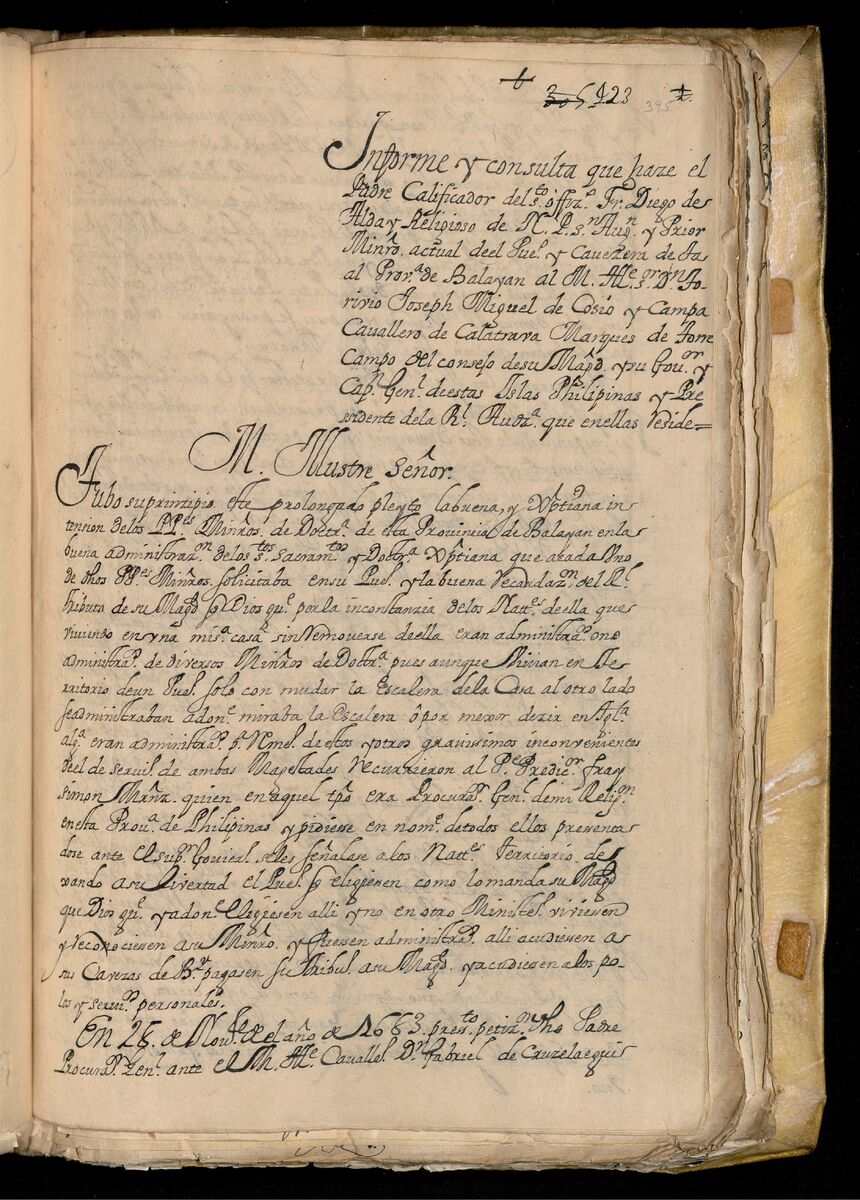 305 123 395
Informe y consulta que haze el
Padre Calificador del s.to offiz.o Fr. Diego de
Alday Religioso de N. P. S.n Aug.n y Prior
Minrô. actual deel Pue.o y Cavezera de Ta
al Prov.a de Balayan al M. Ille. s.or Dn To-
rivio Joseph Miguel de Cosio y Campa
Cavallero de Calatrava Marques de Torre
Campo del consejo desu Magd. y su Gov.or y
Cap.n Gen.l deestas Islas Philipinas y Pre
sidente dela Rl. Audz.a que enellas Reside=
M. Illustre Señor.
Tubo su prinzipio este prolongado pleyto labuena, y Xptiana in
tension delos PP.es Minrôs. de Doctr.a de esta Provincia de Balayan enla
buena administraz.on delos s.tos sacram.tos y Doctr.a Xptiana que acada Uno
de dhos PP.es Minrôs. solicitaba ensu Pue.o y la buena Recardaz.on del Rl.
tributo de su Magd. q Dios gu.e por la inconstanzia delos Natt.es de ella que
viviendo en vna mis.a casa sin removerse deella eran administra.os ono
administra.s de diversos Minrôs de Doctr.a pues aunque Vivian en Te
rritorio deun Pue.o solo con mudar la Escalera dela Casa al otro lado
se administraban adon.e miraba la Escalera ô por mexor dezir en Igl.a
alg.a eran administra.s Y Vene.l de estos y otros gravissimos inconvenientes
deel de servi.o de ambas Magestades Recurrieron al P.e Predic.or fray
Simon Mrñz. quien en aquel tpô era Procura.or Gen.l demi Relig.on
enesta Prov.a de Philipinas y pidiese en nom.e detodos ellos presenta
dose ante el sup.or Govier.o seles señalase alos Natt.es Territorio de
xando a su Livertad el Pue.o q eligiesen como lo manda su Magd
que Dios gu.e y adon.e eligiesen alli y no en otro Ministe.o viviessen
y reconociesen a su Minrô. y fuessen administra.s alli acudiesen a
sus Cavezas de B.y pagasen su tribu.o a su Magd. y acudiesen alos po-
los y servi.os personales.
En 28 de Nov.re de el año de 1683 pres.to petiz.on dho Padre
Procura.or Gen.l ante el M. Ille Cavalle.o Dn Gabriel de Cruzelaegui